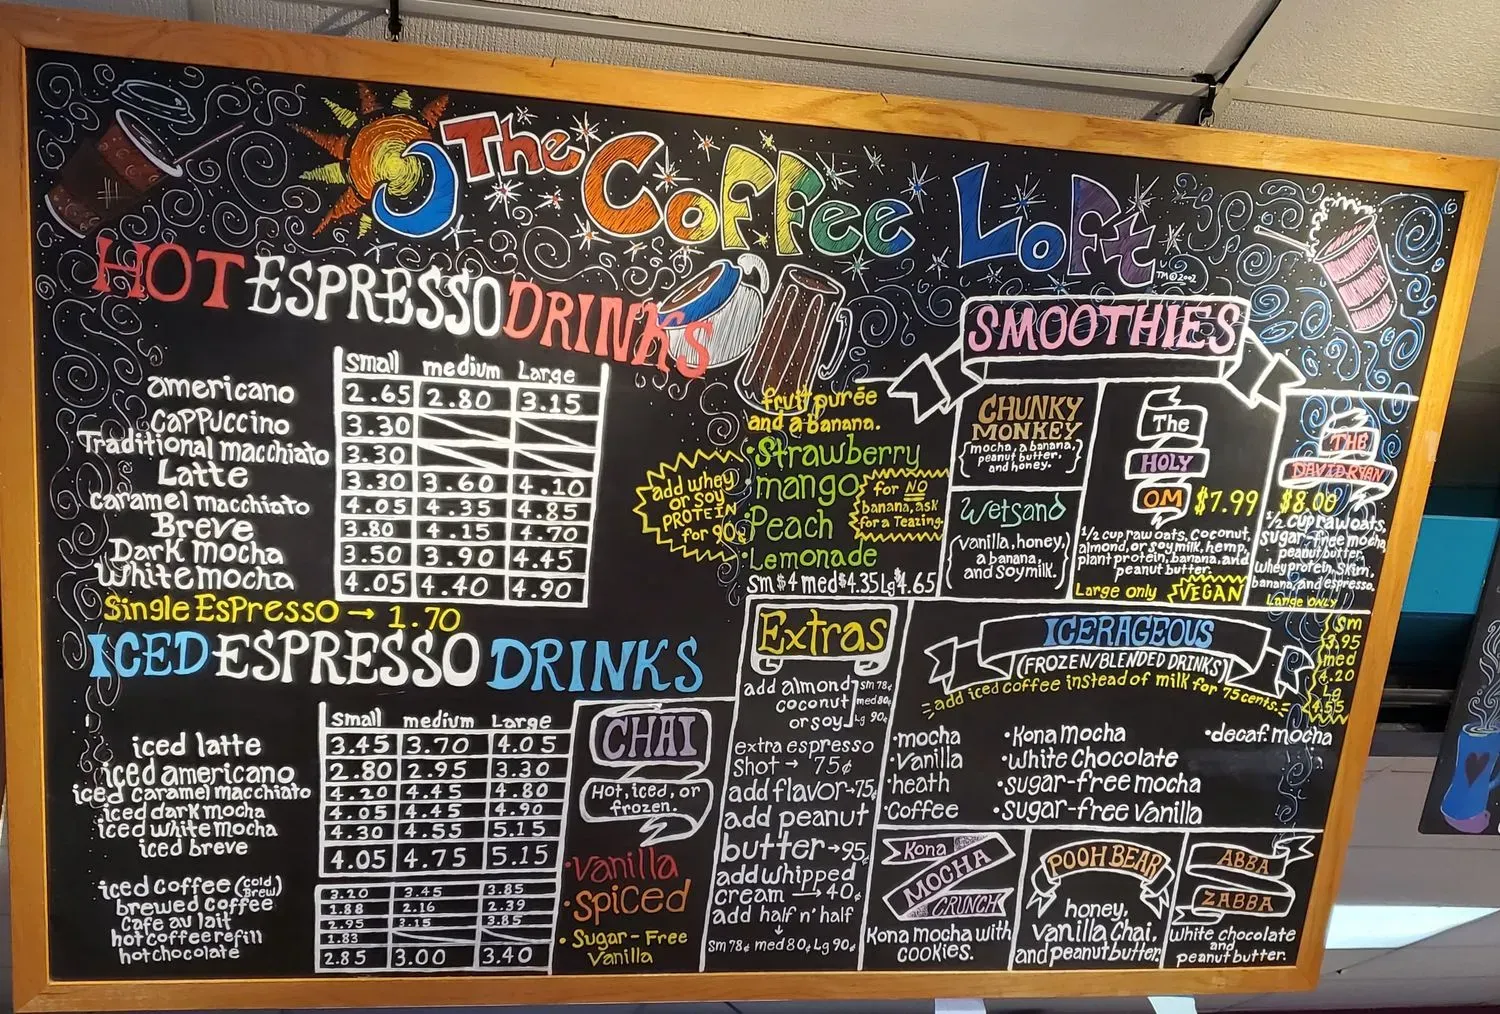 The Coffee Loft
TM©2002
HOT ESPRESSO DRINKS
small medium Large
americano 2.65 2.80 3.15
cappuccino 3.30
Traditional macchiato 3.30
Latte 3.30 3.60 4.10
caramel macchiato 4.05 4.35 4.85
Breve 3.80 4.15 4.70
Dark mocha 3.50 3.90 4.45
White mocha 4.05 4.40 4.90
Single Espresso → 1.70
ICED ESPRESSO DRINKS
small medium Large
iced latte 3.45 3.70 4.05
iced americano 2.80 2.95 3.30
iced caramel macchiato 4.20 4.45 4.80
iced dark mocha 4.05 4.45 4.90
iced white mocha 4.30 4.55 5.15
iced breve 4.05 4.75 5.15
iced coffee (cold Brew) 3.20 3.45 3.85
brewed coffee 1.88 2.16 2.39
cafe au lait 2.95 3.15 3.85
hot coffee refill 1.83
hot chocolate 2.85 3.00 3.40
CHAI
Hot, iced, or
frozen.
•vanilla
•spiced
•Sugar-Free
Vanilla
SMOOTHIES
fruit purée
and a banana.
•Strawberry
mango
•Peach
•Lemonade
sm $4 med $4.35 Lg $4.65
add whey
or soy
PROTEIN
for 90¢
for NO
banana, ask
for a Teazing.
CHUNKY
MONKEY
(mocha, a banana,
peanut butter,
and honey.)
Wetsand
(vanilla, honey,
a banana,
and soymilk.)
The
HOLY
OM $7.99
1/2 cup raw oats, coconut,
almond, or soy milk, hemp,
plant protein, banana, and
peanut butter.
Large only VEGAN
THE
DAVID RYAN
$8.08
1/2 cup raw oats,
sugar-free mocha,
peanut butter,
whey protein, skim,
banana, and espresso.
Large ONLY
Extras
add almond sm 78¢
coconut med 80¢
or soy Lg 90¢
extra espresso
shot → 75¢
add flavor → 75¢
add peanut
butter → 95¢
add whipped
cream → 40¢
add half n' half
↓
sm 78¢ med 80¢ Lg 90¢
ICERAGEOUS
(FROZEN/BLENDED DRINKS)
add iced coffee instead of milk for 75 cents.
sm
3.95
med
4.20
Lg
4.55
•mocha
•vanilla
•heath
•Coffee
•Kona Mocha
•White Chocolate
•sugar-free mocha
•sugar-free vanilla
•decaf mocha
Kona
MOCHA
CRUNCH
Kona mocha with
cookies.
POOH BEAR
honey,
vanilla chai,
and peanut butter.
ABBA
ZABBA
White chocolate
and
peanut butter.